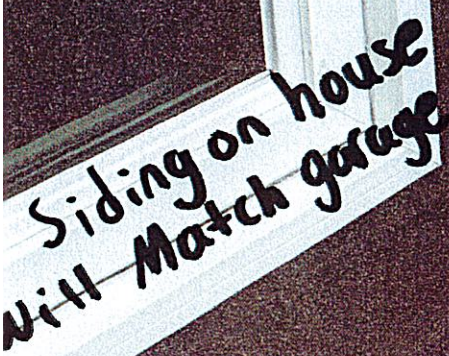 Siding on house
Will Match garage